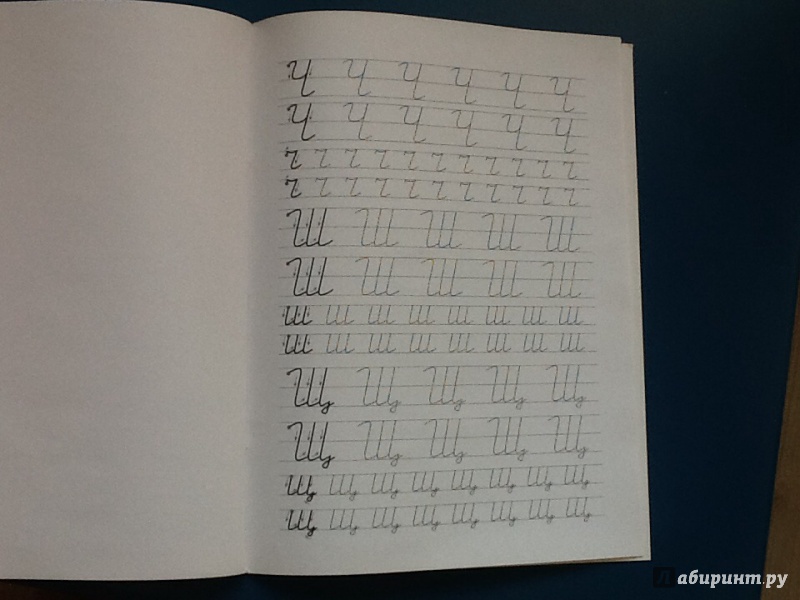 Ч Ч Ч Ч Ч Ч
Ч Ч Ч Ч Ч Ч
ч ч ч ч ч ч ч ч ч ч
ч ч ч ч ч ч ч ч ч ч
Ш Ш Ш Ш Ш
Ш Ш Ш Ш Ш
ш ш ш ш ш ш ш ш
ш ш ш ш ш ш ш ш
Щ Щ Щ Щ Щ
Щ Щ Щ Щ Щ
щ щ щ щ щ щ щ щ
щ щ щ щ щ щ щ щ
Лабиринт.ру